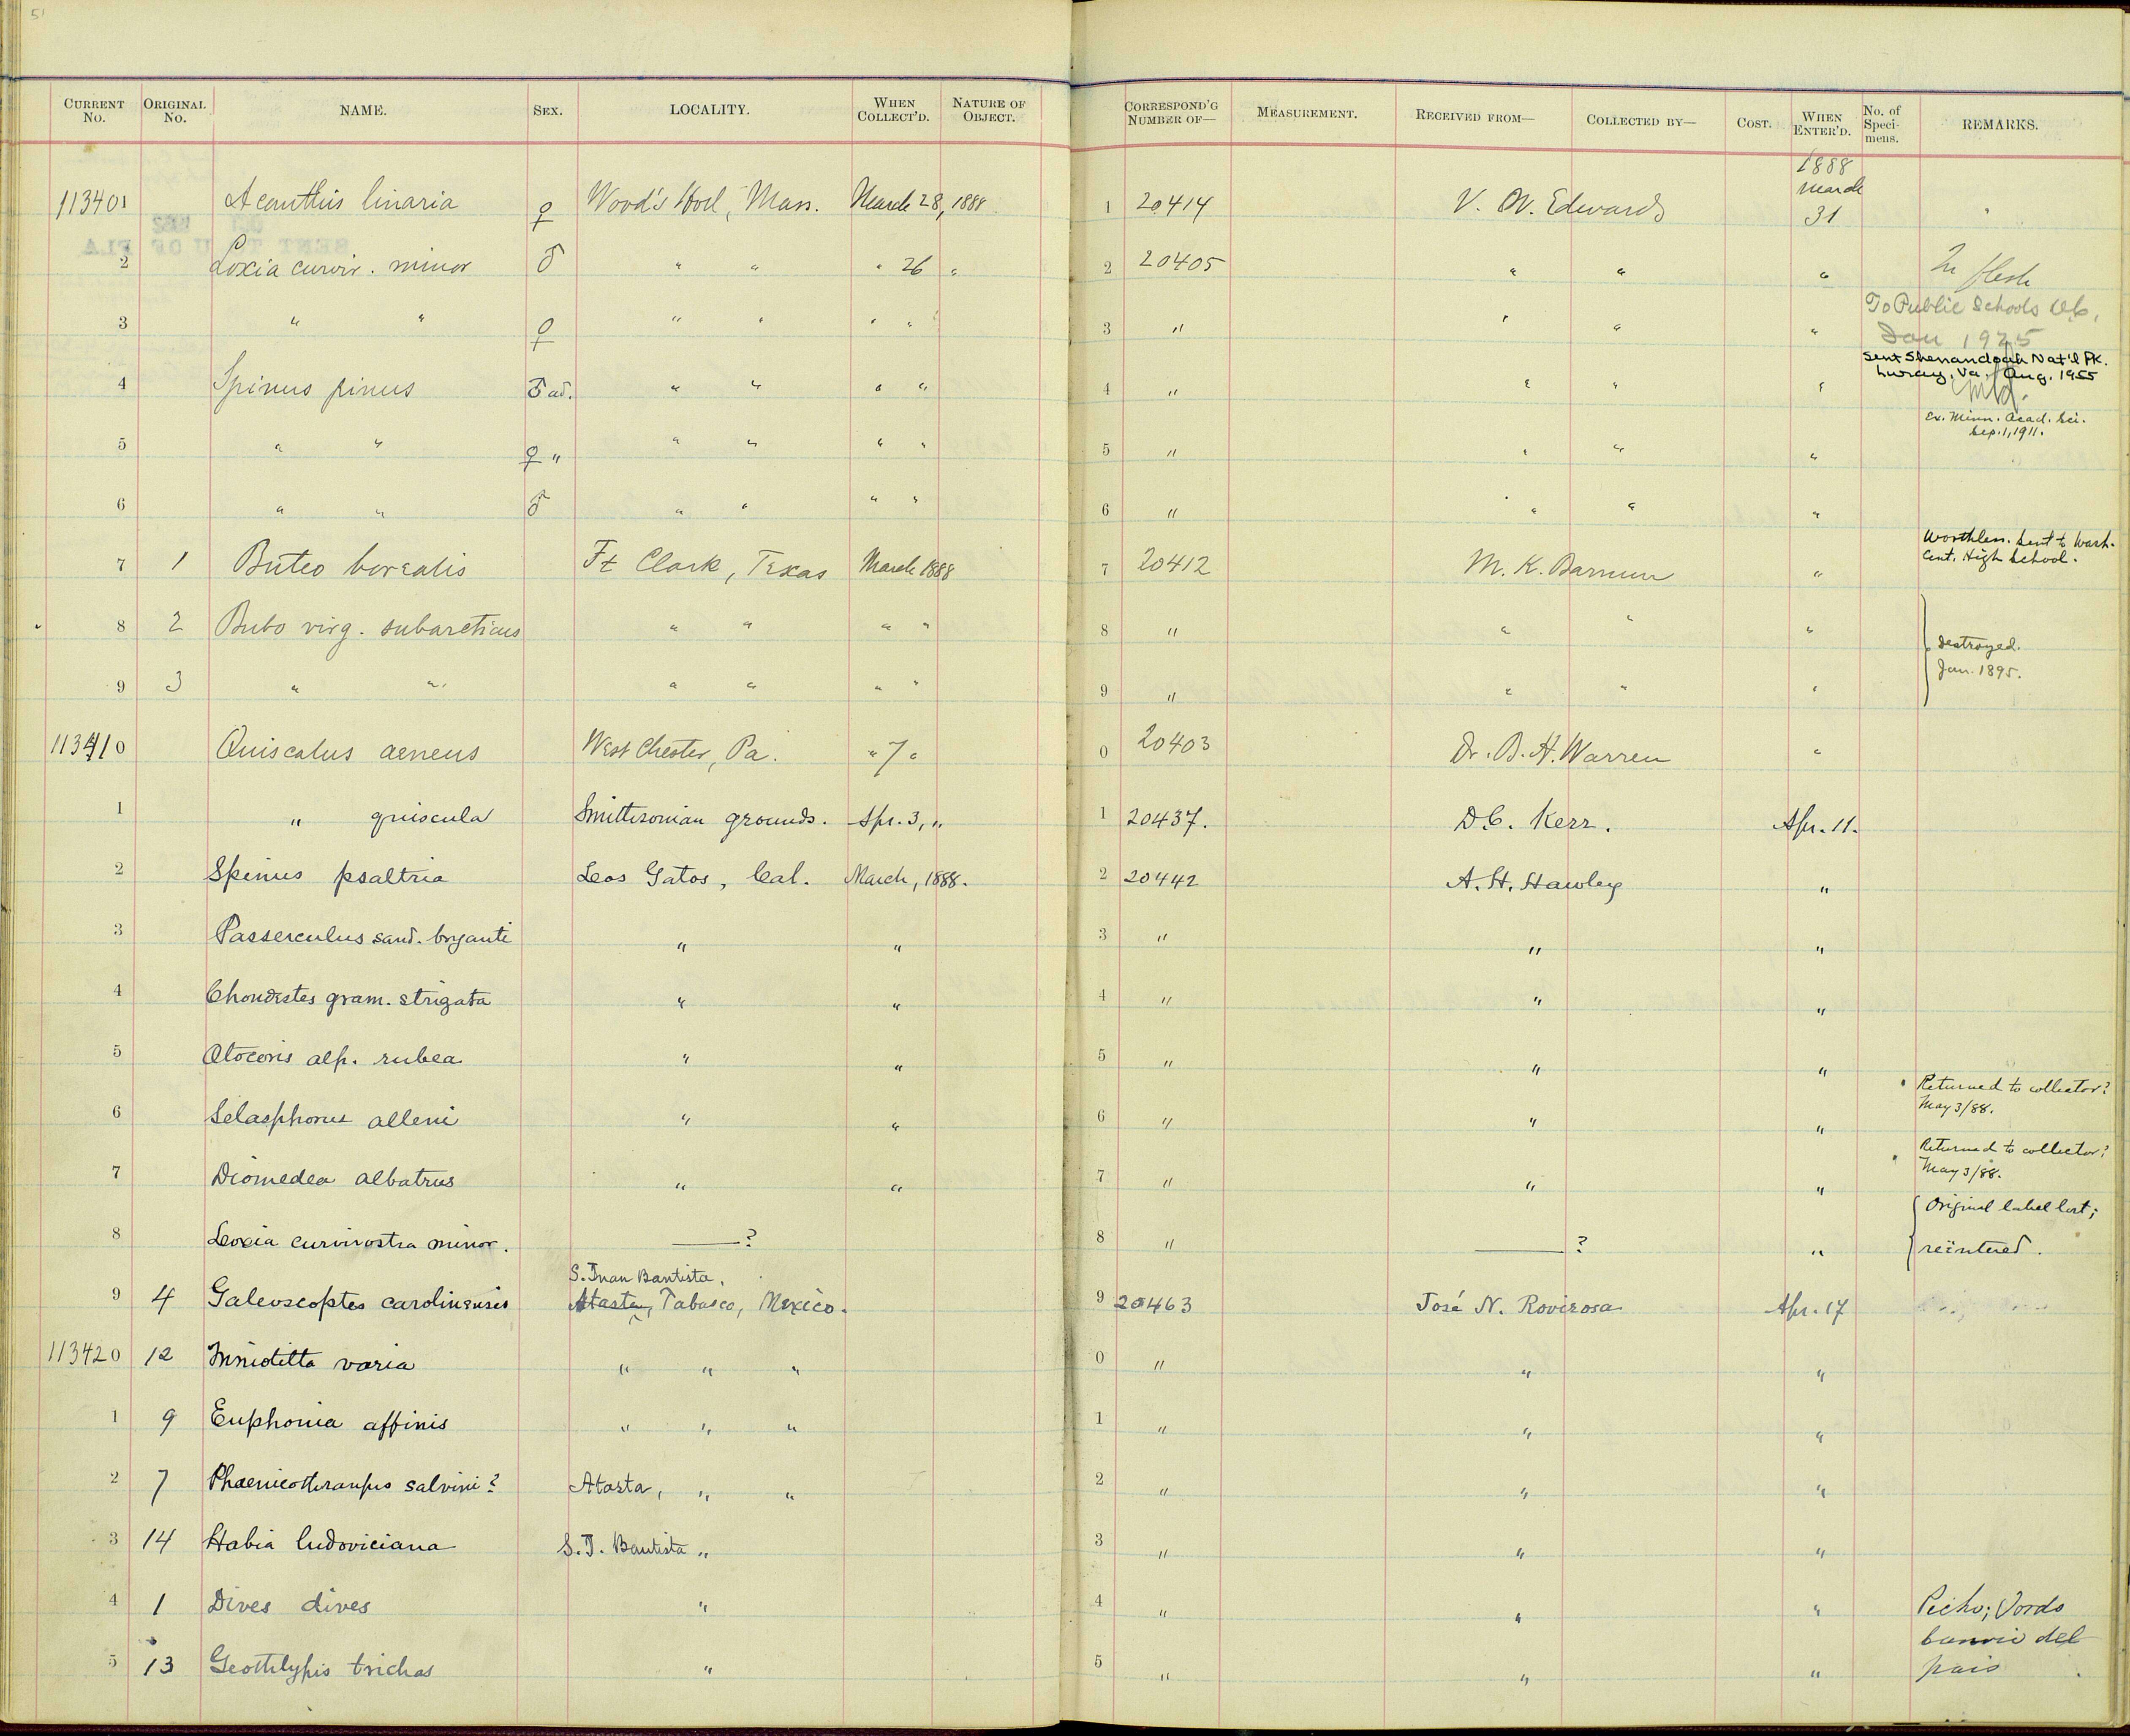 51
CURRENT No. ORIGINAL No. NAME. SEX. LOCALITY. WHEN COLLECT'D. NATURE OF OBJECT. CORRESPOND'G NUMBER OF— MEASUREMENT. RECEIVED FROM— COLLECTED BY— COST. WHEN ENTER'D. No. of Specimens. REMARKS.
113401 Acanthis linaria ♀ Wood's Holl, Mass. March 28, 1888 1 20414 V. N. Edwards 1888 March 31
2 Loxia curvir. minor ♂ " " " 26 " 2 20405 " " " In flesh
3 " " ♀ " " " " 3 " " " " To Public Schools
Jan 1925
4 Spinus pinus ♂ ad. " " " " 4 " " " " Sent Shenandoah Nat'l Pk.
Luray, Va. Aug. 1955
5 " " ♀ " " " " " 5 " " " " Ex. Minn. Acad. Sci.
Sep. 1, 1911.
6 " " ♂ " " " " 6 " " " "
7 1 Buteo borealis Ft Clark, Texas March 1888 7 20412 M. K. Barnum " Worthless. Sent to Wash.
Cent. High School.
8 2 Bubo virg. subarcticus " " " " 8 " " " " Destroyed.
9 3 " " " " " " 9 " " " " Jan. 1895.
113410 Quiscalus aeneus West Chester, Pa. " 7 " 0 20403 Dr. B. H. Warren "
1 " quiscula Smithsonian grounds. Apr. 3, " 1 20437. Kerr. Apr. 11.
2 Spinus psaltria Los Gatos, Cal. March, 1888. 2 20442 A. H. Hawley "
3 Passerculus sand. bryanti " " 3 " " "
4 Chondestes gram. strigata " " 4 " " "
5 Otocoris alp. rubea " " 5 " " "
6 Selasphorus alleni " " 6 " " " Returned to collector?
May 3/88.
7 Diomedea albatrus " " 7 " " " Returned to collector?
May 3/88.
8 Loxia curvirostra minor. —? 8 " —? " Original label lost;
reëntered.
S. Juan Bautista,
9 4 Galeoscoptes carolinensis Atasta, Tabasco, Mexico. 9 20463 José N. Rovirosa Apr. 17
113420 12 Mniotilta varia " " " 0 " " "
1 9 Euphonia affinis " " " 1 " " "
2 7 Phaenicothraupis salvini? Atasta, " " 2 " " "
3 14 Habia ludoviciana S. J. Bautista " 3 " " "
4 1 Dives dives " 4 " " " Picho;
5 13 Geothlypis trichas " 5 " " " del
pais